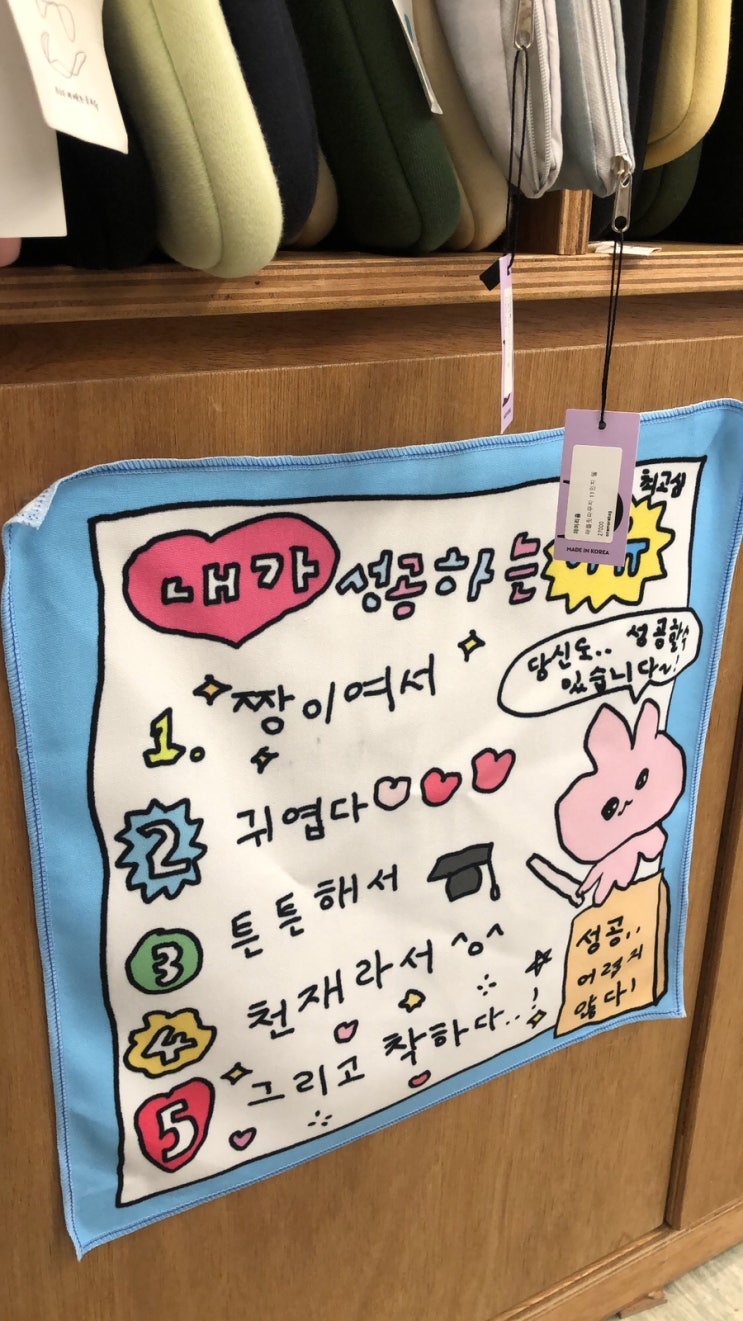 최고심
내가 성공하는
당신도.. 성공할수
있습니다~!
1. 짱이여서
2 귀엽다
3 튼튼해서
4 천재라서 ^o^
5 그리고 착하다..!
성공..
어렵지
않다!
27000
MADE IN KOREA